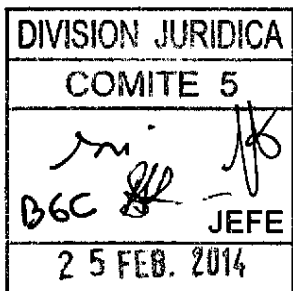 DIVISION JURIDICA
COMITE 5
BGC
JEFE
25 FEB. 2014